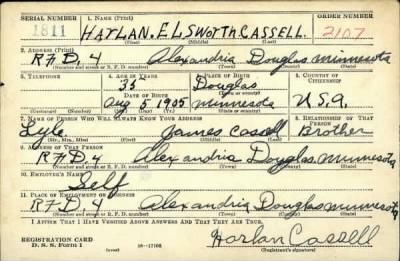 SERIAL NUMBER 1. NAME (Print) ORDER NUMBER
1811 HARLAN. ELSWORTH. CASSELL. 2107
(First) (Middle) (Last)
2. ADDRESS (Print)
R.F.D. 4 Alexandria Douglas Minnesota
(Number and street or R. F. D. number) (Town) (County) (State)
3. TELEPHONE 4. AGE IN YEARS 5. PLACE OF BIRTH 6. COUNTRY OF CITIZENSHIP
35 Douglas
DATE OF BIRTH (Town or county)
Aug 5 1905 Minnesota U.S.A.
(Exchange) (Number) (Mo.) (Day) (Yr.) (State or country)
7. NAME OF PERSON WHO WILL ALWAYS KNOW YOUR ADDRESS 8. RELATIONSHIP OF THAT PERSON
Lyle James Cassell Brother
(Mr., Mrs., Miss) (First) (Middle) (Last)
9. ADDRESS OF THAT PERSON
R.F.D. 4 Alexandria Douglas Minnesota
(Number and street or R. F. D. number) (Town) (County) (State)
10. EMPLOYER'S NAME
Self
11. PLACE OF EMPLOYMENT OR BUSINESS
R.F.D. 4 Alexandria Douglas Minnesota
(Number and street or R. F. D. number) (Town) (County) (State)
I AFFIRM THAT I HAVE VERIFIED ABOVE ANSWERS AND THAT THEY ARE TRUE.
REGISTRATION CARD
D. S. S. FORM 1 (over) 16-17105 Harlan Cassell
(Registrant's signature)